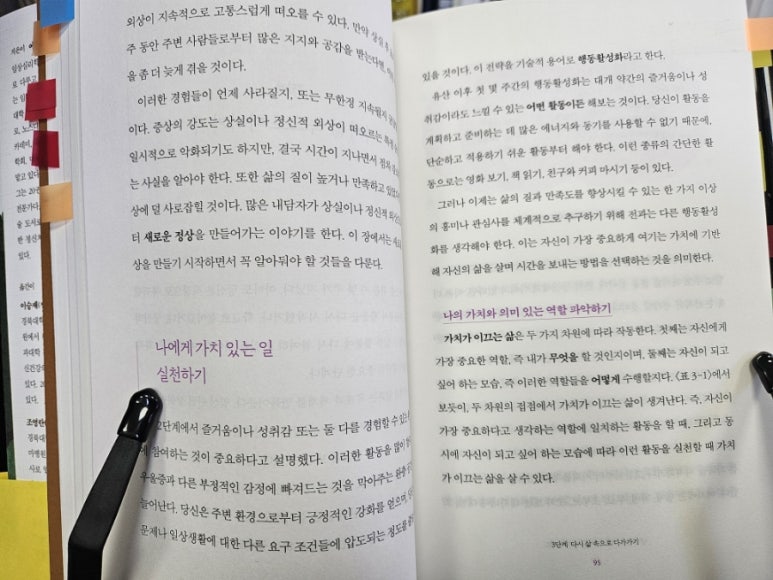 지은이
임상심리학
외상이 지속적으로 고통스럽게 떠오를 수 있다. 만약 상실 후
주 동안 주변 사람들로부터 많은 지지와 공감을 받는다면,
을 좀 더 늦게 겪을 것이다.
이러한 경험들이 언제 사라질지, 또는 무한정 지속될지
이다. 증상의 강도는 상실이나 정신적 외상이 떠오르는
일시적으로 악화되기도 하지만, 결국 시간이 지나면서 점차
는 사실을 알아야 한다. 또한 삶의 질이 높거나 만족하고
상에 덜 사로잡힐 것이다. 많은 내담자가 상실이나 정신적
터 새로운 정상을 만들어가는 이야기를 한다. 이 장에서는
상을 만들기 시작하면서 꼭 알아둬야 할 것들을 다룬다.
나에게 가치 있는 일
실천하기
2단계에서 즐거움이나 성취감 또는 둘 다를 경험할 수 있는
에 참여하는 것이 중요하다고 설명했다. 이러한 활동을 많이
우울증과 다른 부정적인 감정에 빠져드는 것을 막아주는
늘어난다. 당신은 주변 환경으로부터 긍정적인 강화를 얻으며,
문제나 일상생활에 대한 다른 요구 조건들에 압도되는 정도를
있을 것이다. 이 전략을 기술적 용어로 행동활성화라고 한다.
유산 이후 첫 몇 주간의 행동활성화는 대개 약간의 즐거움이나 성
취감이라도 느낄 수 있는 어떤 활동이든 해보는 것이다. 당신이 활동을
계획하고 준비하는 데 많은 에너지와 동기를 사용할 수 없기 때문에,
단순하고 적용하기 쉬운 활동부터 해야 한다. 이런 종류의 간단한 활
동으로는 영화 보기, 책 읽기, 친구와 커피 마시기 등이 있다.
그러나 이제는 삶의 질과 만족도를 향상시킬 수 있는 한 가지 이상
의 흥미나 관심사를 체계적으로 추구하기 위해 전과는 다른 행동활성
화를 생각해야 한다. 이는 자신이 가장 중요하게 여기는 가치에 기반
해 자신의 삶을 살며 시간을 보내는 방법을 선택하는 것을 의미한다.
나의 가치와 의미 있는 역할 파악하기
가치가 이끄는 삶은 두 가지 차원에 따라 작동한다. 첫째는 자신에게
가장 중요한 역할, 즉 내가 무엇을 할 것인지이며, 둘째는 자신이 되고
싶어 하는 모습, 즉 이러한 역할들을 어떻게 수행할지다. 〈표 3-1〉에서
보듯이, 두 차원의 접점에서 가치가 이끄는 삶이 생겨난다. 즉, 자신이
가장 중요하다고 생각하는 역할에 일치하는 활동을 할 때, 그리고 동
시에 자신이 되고 싶어 하는 모습에 따라 이런 활동을 실천할 때 가치
가 이끄는 삶을 살 수 있다.
3단계: 다시 삶 속으로 다가가기
95